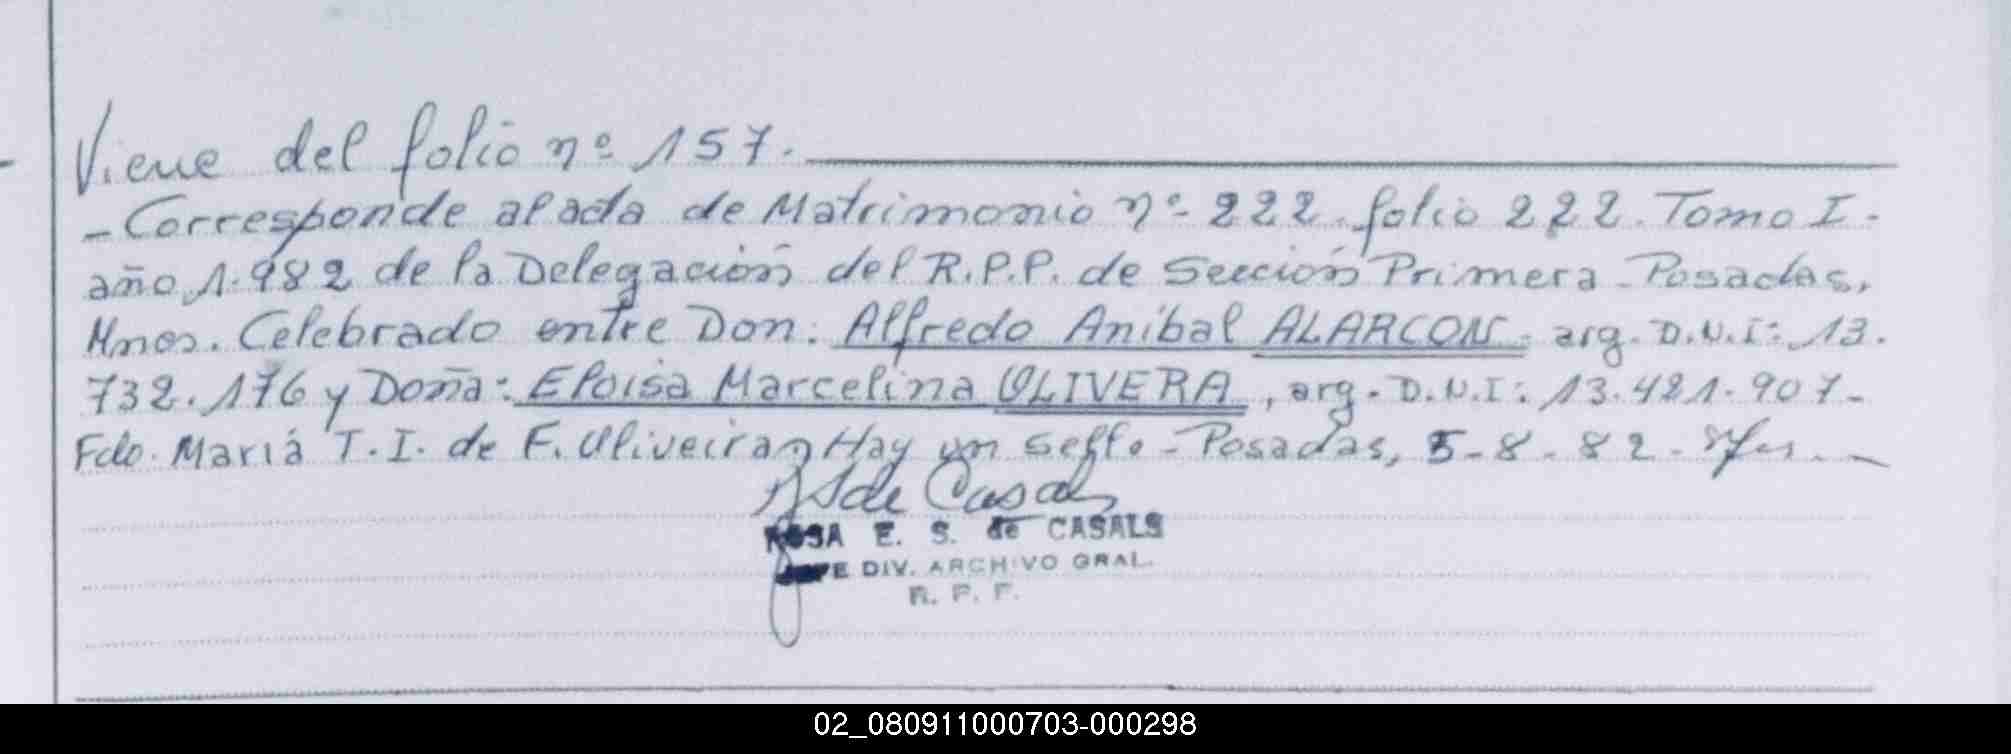 Viene del folio nº 157.
- Corresponde al acta de Matrimonio nº 222. folio 222. Tomo I -
año 1.982 de la Delegación del R.P.P. de Sección Primera - Posadas,
Mnes. Celebrado entre Don: Alfredo Anibal ALARCON. arg. D.N.I: 13.
732.176 y Doña: Eloisa Marcelina OLIVERA, arg. D.N.I: 13.421.907-
Fdo. Mariá T. I. de F. Oliveira, Hay un sello - Posadas, 5-8-82-
de Casals
ROSA E. S. de CASALS
JEFE DIV. ARCHIVO GRAL.
R. P. P.
02_080911000703-000298